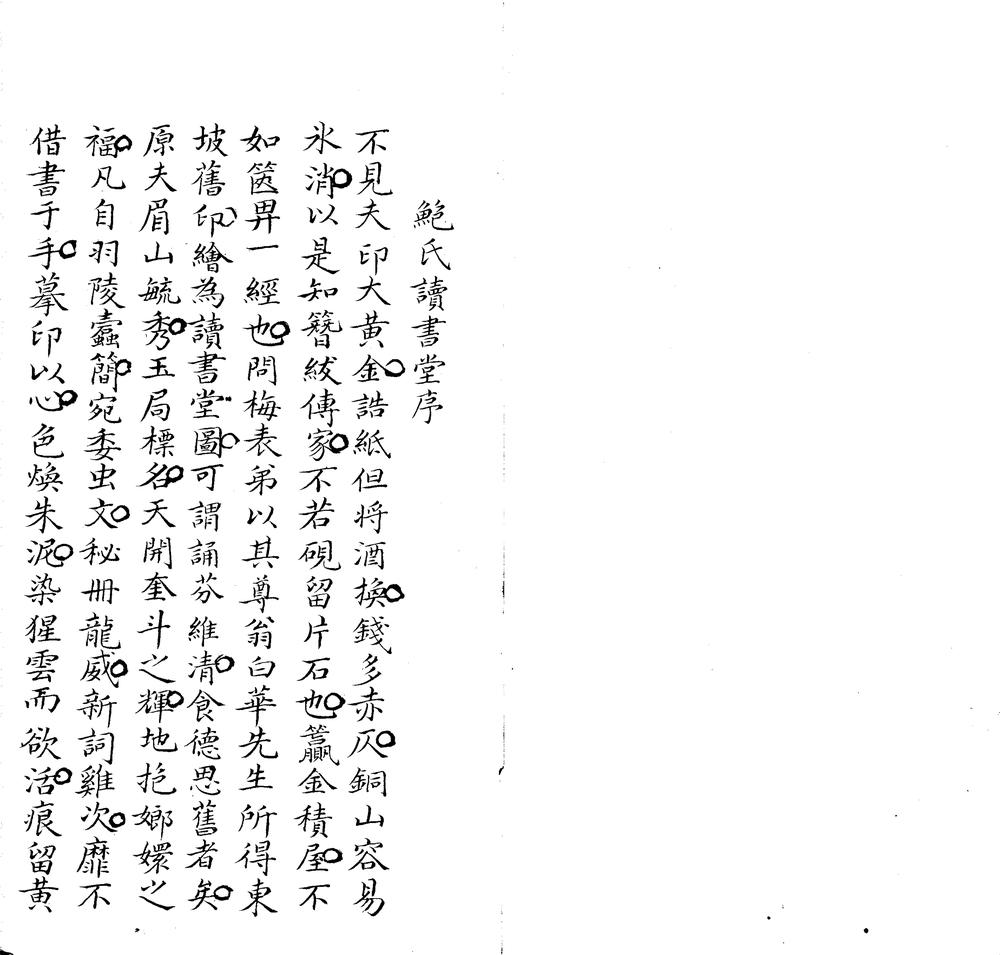 鮑氏讀書堂序
不見夫印大黃金誥紙但将酒換錢多赤仄銅山容易
氷消以是知簪紱傳家不若硯留片石也籯金積屋不
如篋畀一經也問梅表弟以其尊翁白華先生所得東
坡舊印繪為讀書堂圖可謂誦芬維清食德思舊者矣
原夫眉山毓秀玉局標名天開奎斗之輝地挹嫏嬛之
福凡自羽陵蠹簡宛委虫文秘冊龍威新詞雞次靡不
借書于手摹印以心色煥朱泥染猩雲而欲活痕留黃